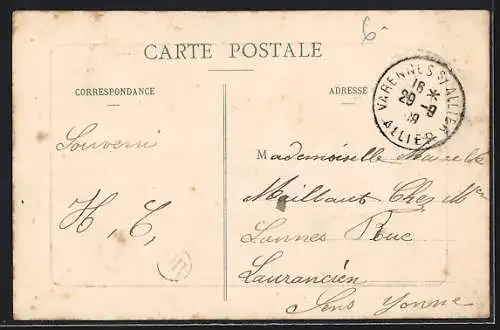 6
CARTE POSTALE
CORRESPONDANCE
ADRESSE
VARENNES S/ ALLIER
16 *
29 -9
09
ALLIER
Souveni
H, C,
Mademoiselle Marcelle
Maillaut Chez Mr
Lannes Rue
Laurancien
Sens Yonne